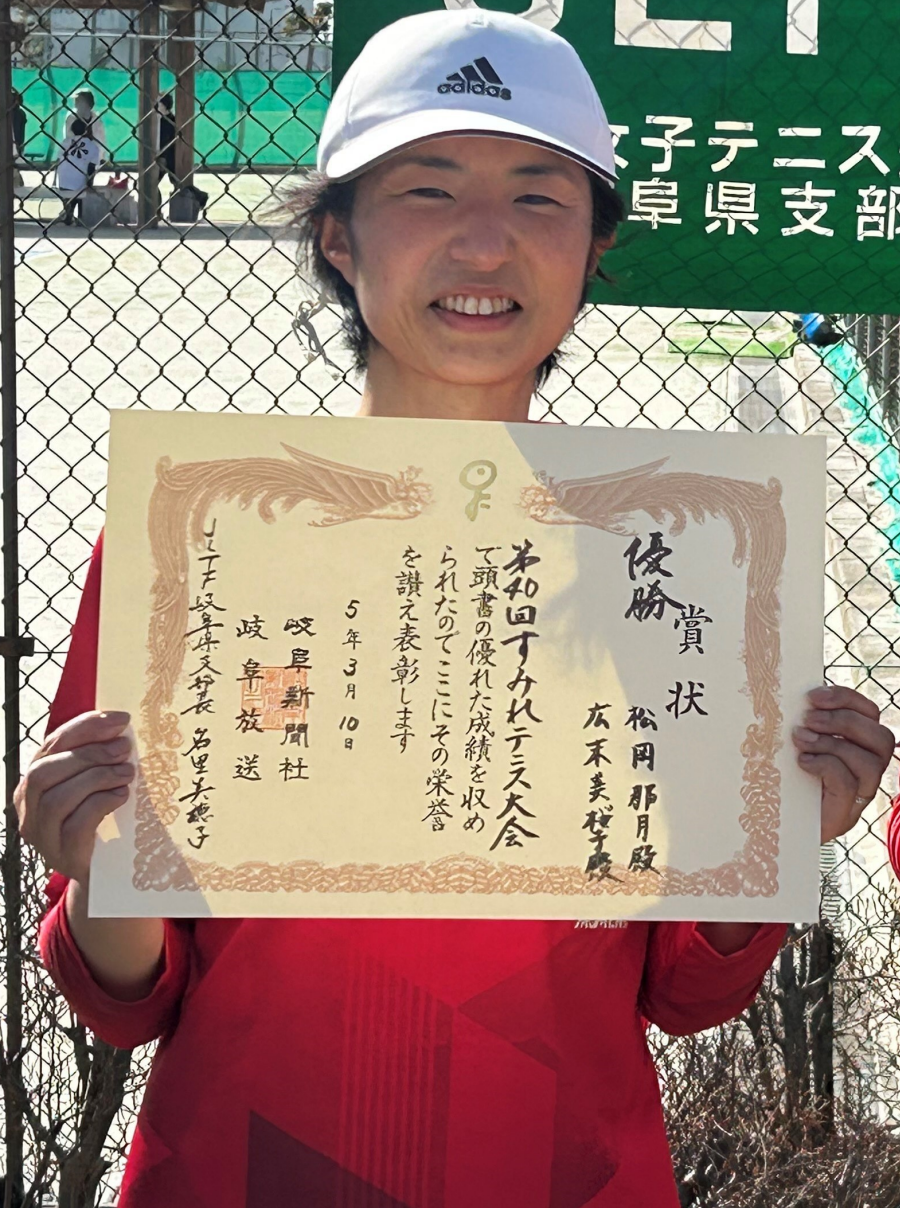 adidas
子テニス
阜県支部
賞状
優勝
松岡那月殿
広末美桜子殿
第40回すみれテニス大会
で頭書の優れた成績を収め
られたのでここにその栄誉
を讃え表彰します
5年3月10日
岐阜新聞社
岐阜放送
岐阜県支部長